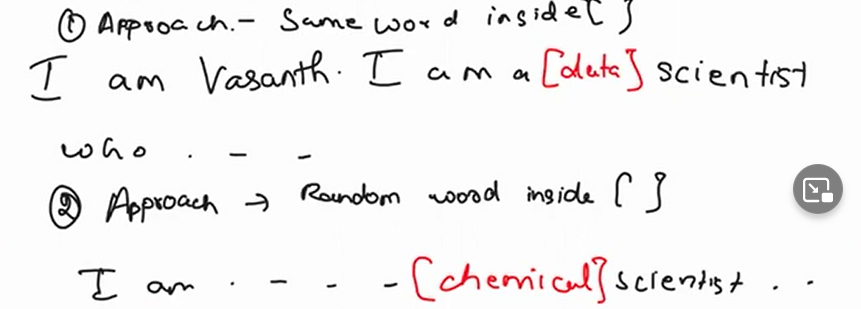 ① Approach.- Same word inside [ ]
I am Vasanth. I am a [data] scientist
who . - -
② Approach → Random word inside [ ]
I am . - - - [chemical] scientist . .